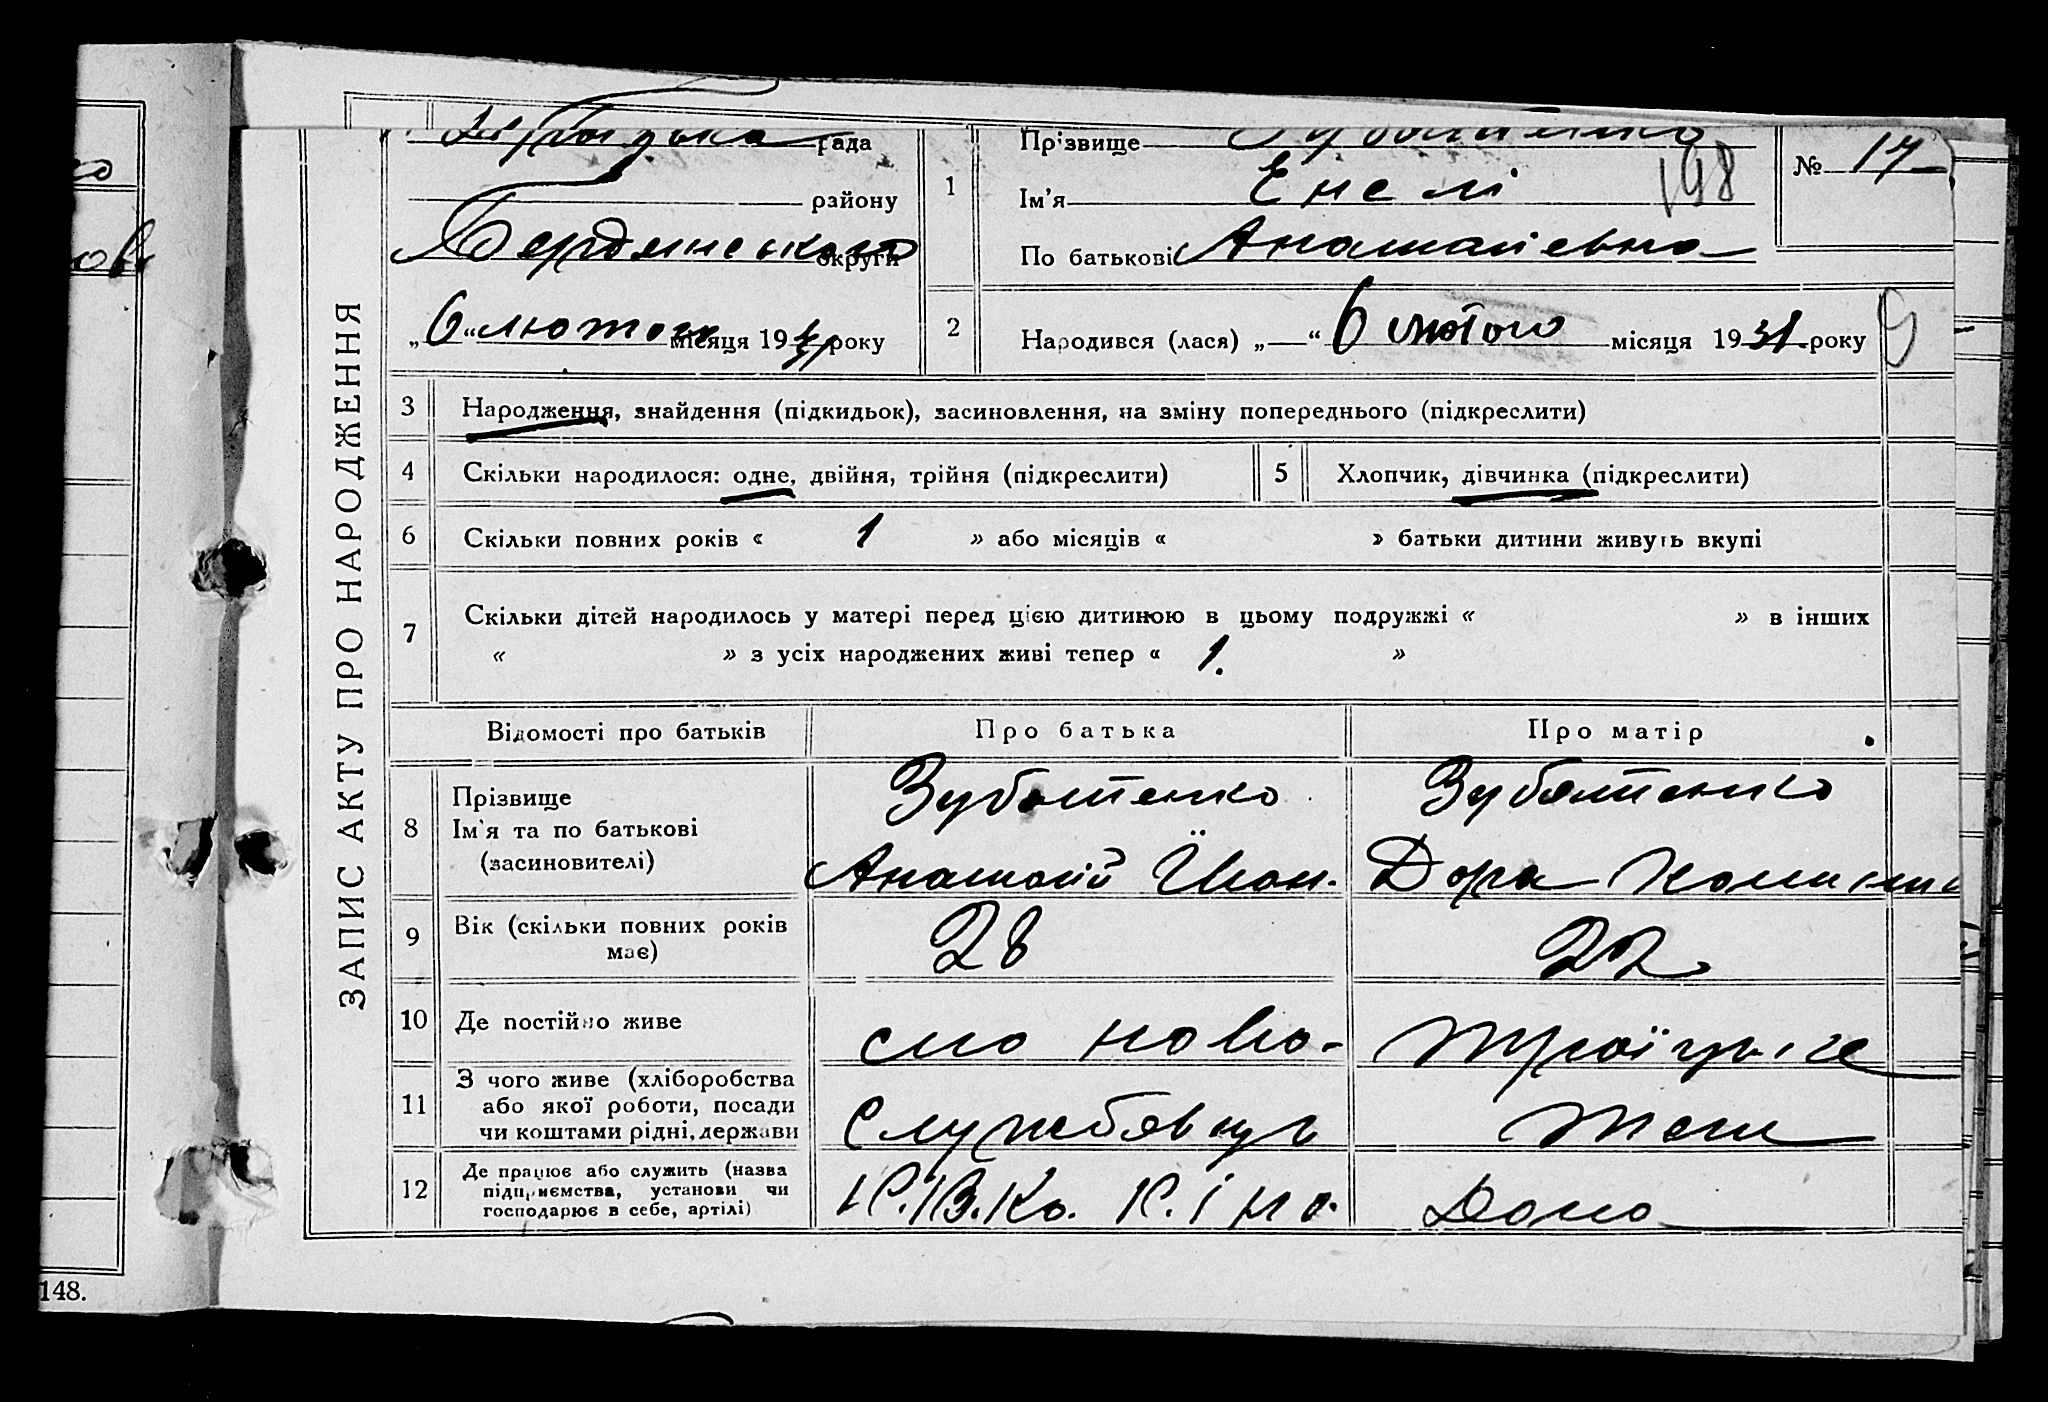 рада
району
Бердянського округи
„6“ лютого місяця 19 31 року
1
Прізвище
198
Ім'я Енелі
По батькові Анатолієвна
№ 17
2
Народився (лася) „ “ 6 лютого місяця 1931 року
9
ЗАПИС АКТУ ПРО НАРОДЖЕННЯ
3 Народження, знайдення (підкидьок), засиновлення, на зміну попереднього (підкреслити)
4 Скільки народилося: одне, двійня, трійня (підкреслити)
5 Хлопчик, дівчинка (підкреслити)
6 Скільки повних років « 1 » або місяців « » батьки дитини живуть вкупі
7 Скільки дітей народилось у матері перед цією дитиною в цьому подружжі « » в інших
« » з усіх народжених живі тепер « 1. »
Відомості про батьків
Про батька
Про матір
8 Прізвище
Ім'я та по батькові
(засиновителі)
Зубатенко
Анатолій Йван.
Зубатенко
Дора
9 Вік (скільки повних років
має)
28
22
10 Де постійно живе
село ново-
троїцьке
11 З чого живе (хліборобства
або якої роботи, посади
чи коштами рідні, держави
Службовець
12 Де працює або служить (назва
підприємства, установи чи
господарює в себе, артілі)
Кіно.
Дома
148.